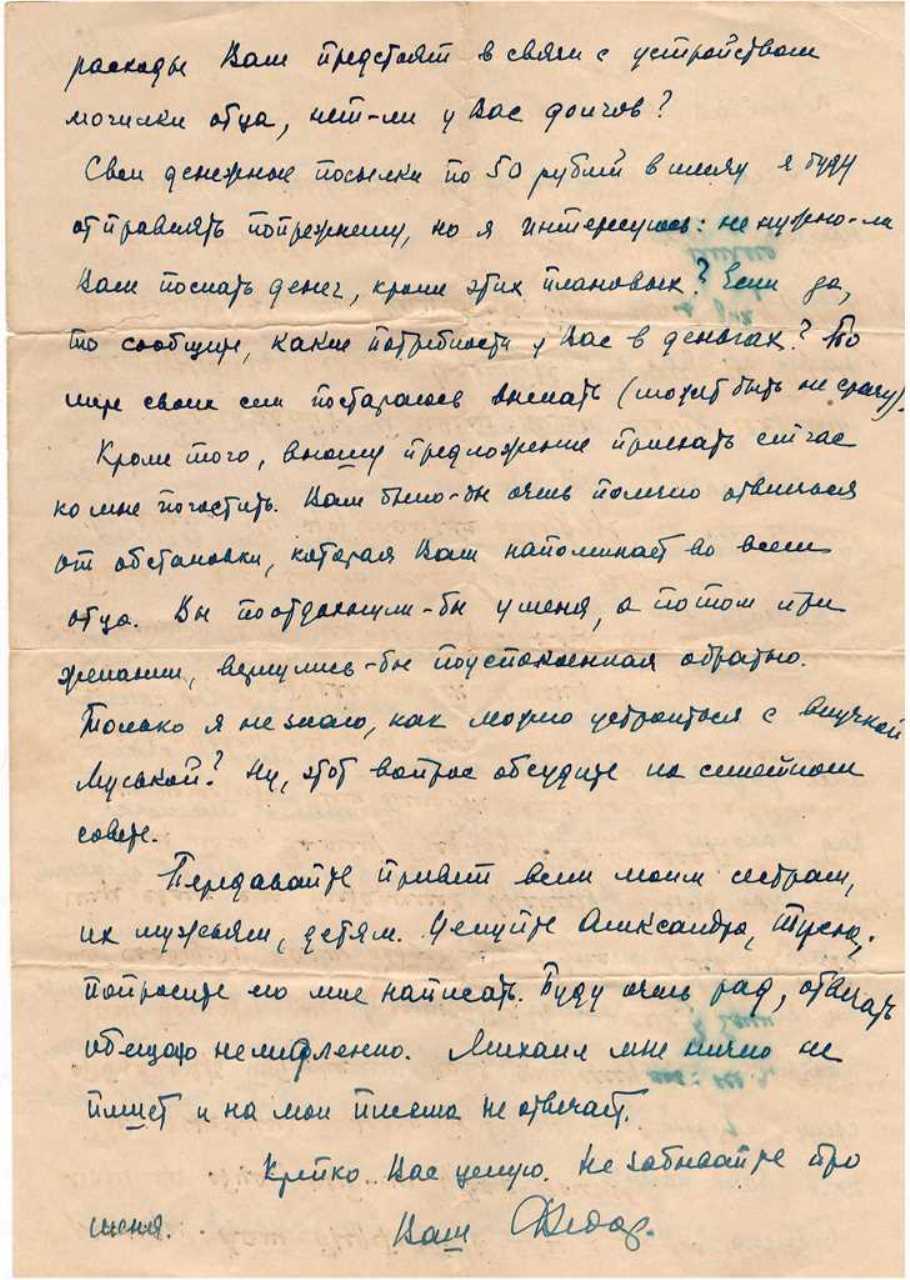 расходы Вам предстоят в связи с устройством
могилки отца, нет-ли у Вас долгов?
Свои денежные посылки по 50 рублей в месяц я буду
отправлять попрежнему, но я интересуюсь: не нужно-ли
Вам послать денег, кроме этих плановых? Если да,
то сообщите, какие потребности у Вас в деньгах? По
мере своих сил постараюсь выслать (может быть не сразу).
Кроме того, вношу предложение приехать сейчас
ко мне погостить. Вам было-бы очень полезно отвлечься
от обстановки, которая Вам напоминает во всем
отца. Вы поотдохнули-бы у меня, а потом при
желании, вернулись-бы поуспокоенная обратно.
Только я не знаю, как можно устроиться с внучкой
Муськой? Ну, этот вопрос обсудите на семейном
совете.
Передавайте привет всем моим сестрам,
их мужьям, детям. Целуйте Александра, Тусю,
попросите их мне написать. Буду очень рад, отвечать
обещаю немедленно. Михаил мне ничего не
пишет и на мои письма не отвечает.
Крепко Вас целую. Не забывайте про
меня. Ваш